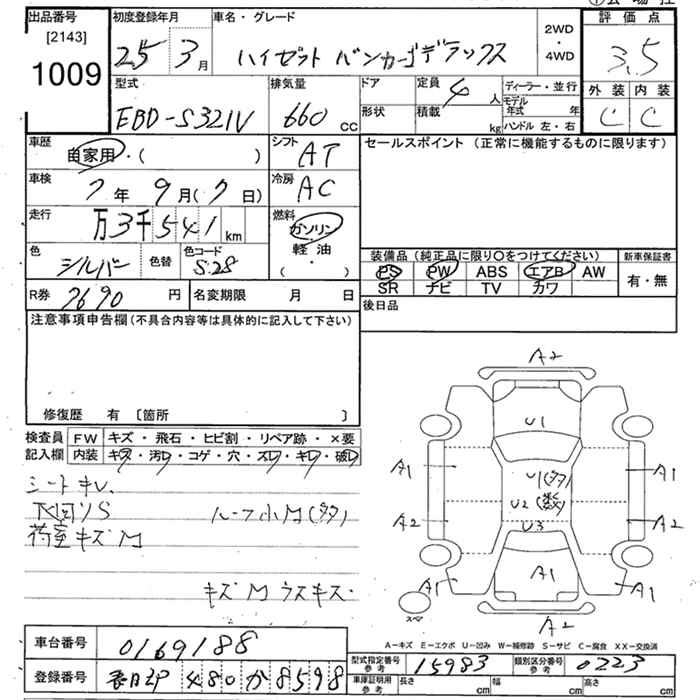 出品番号
[2143]
1009
初度登録年月
25年 3月
車名・グレード
ハイゼット バンカーゴデラックス
2WD
・
4WD
評価点
3.5
外装 内装
C C
型式
EBD-S321V
排気量
660 cc
ドア
形状
定員 4人
積載 kg
ディーラー・並行
モデル年式 年
ハンドル 左・右
車歴
自家用・( )
シフト
AT
車検
7年 9月(7日)
冷房
AC
走行
万3千541 km
燃料
ガソリン
軽油
( ・ )
色
シルバー
色替
色コード
S28
R券 7690 円
名変期限 月 日
セールスポイント (正常に機能するものに限ります)
装備品 (純正品に限り○をつけてください)
PS PW ABS エアB AW
SR ナビ TV カワ
新車保証書
有・無
後日品
注意事項申告欄(不具合内容等は具体的に記入して下さい)
修復歴 有 〔箇所 〕
検査員
記入欄
FW キズ・飛石・ヒビ割・リペア跡・×要
内装 キズ・汚レ・コゲ・穴・スレ・キレ・破レ
シートキレ
下回りS ルーフ小M(多)
荷室キズM
キズM ウスキズ
A2
U1
A1 U1(多) A1
U2(数)
A2 U3 A2
A1 A1 A1
スペア
A2
A−キズ E−エクボ U−凹み W−補修跡 S−サビ C−腐食 XX−交換済
車台番号 0169188
登録番号 春日部 480 か 8598
型式指定番号 参考 15983
類別区分番号 参考 0223
車庫証明用 参考 長さ cm 幅 cm 高さ cm